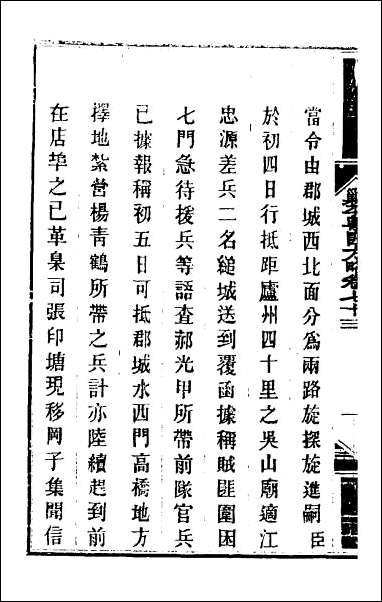 當令由郡城西北面分為兩路旋探旋進嗣臣
於初四日行抵距廬州四十里之吳山廟適江
忠源差兵二名縋城送到覆函據稱賊匪圍困
七門急待援兵等語查郝光甲所帶前隊官兵
已據報稱初五日可抵郡城水西門高橋地方
擇地紮營楊青鶴所帶之兵計亦陸續趕到前
在店埠之已革臬司張印塘現移岡子集聞信